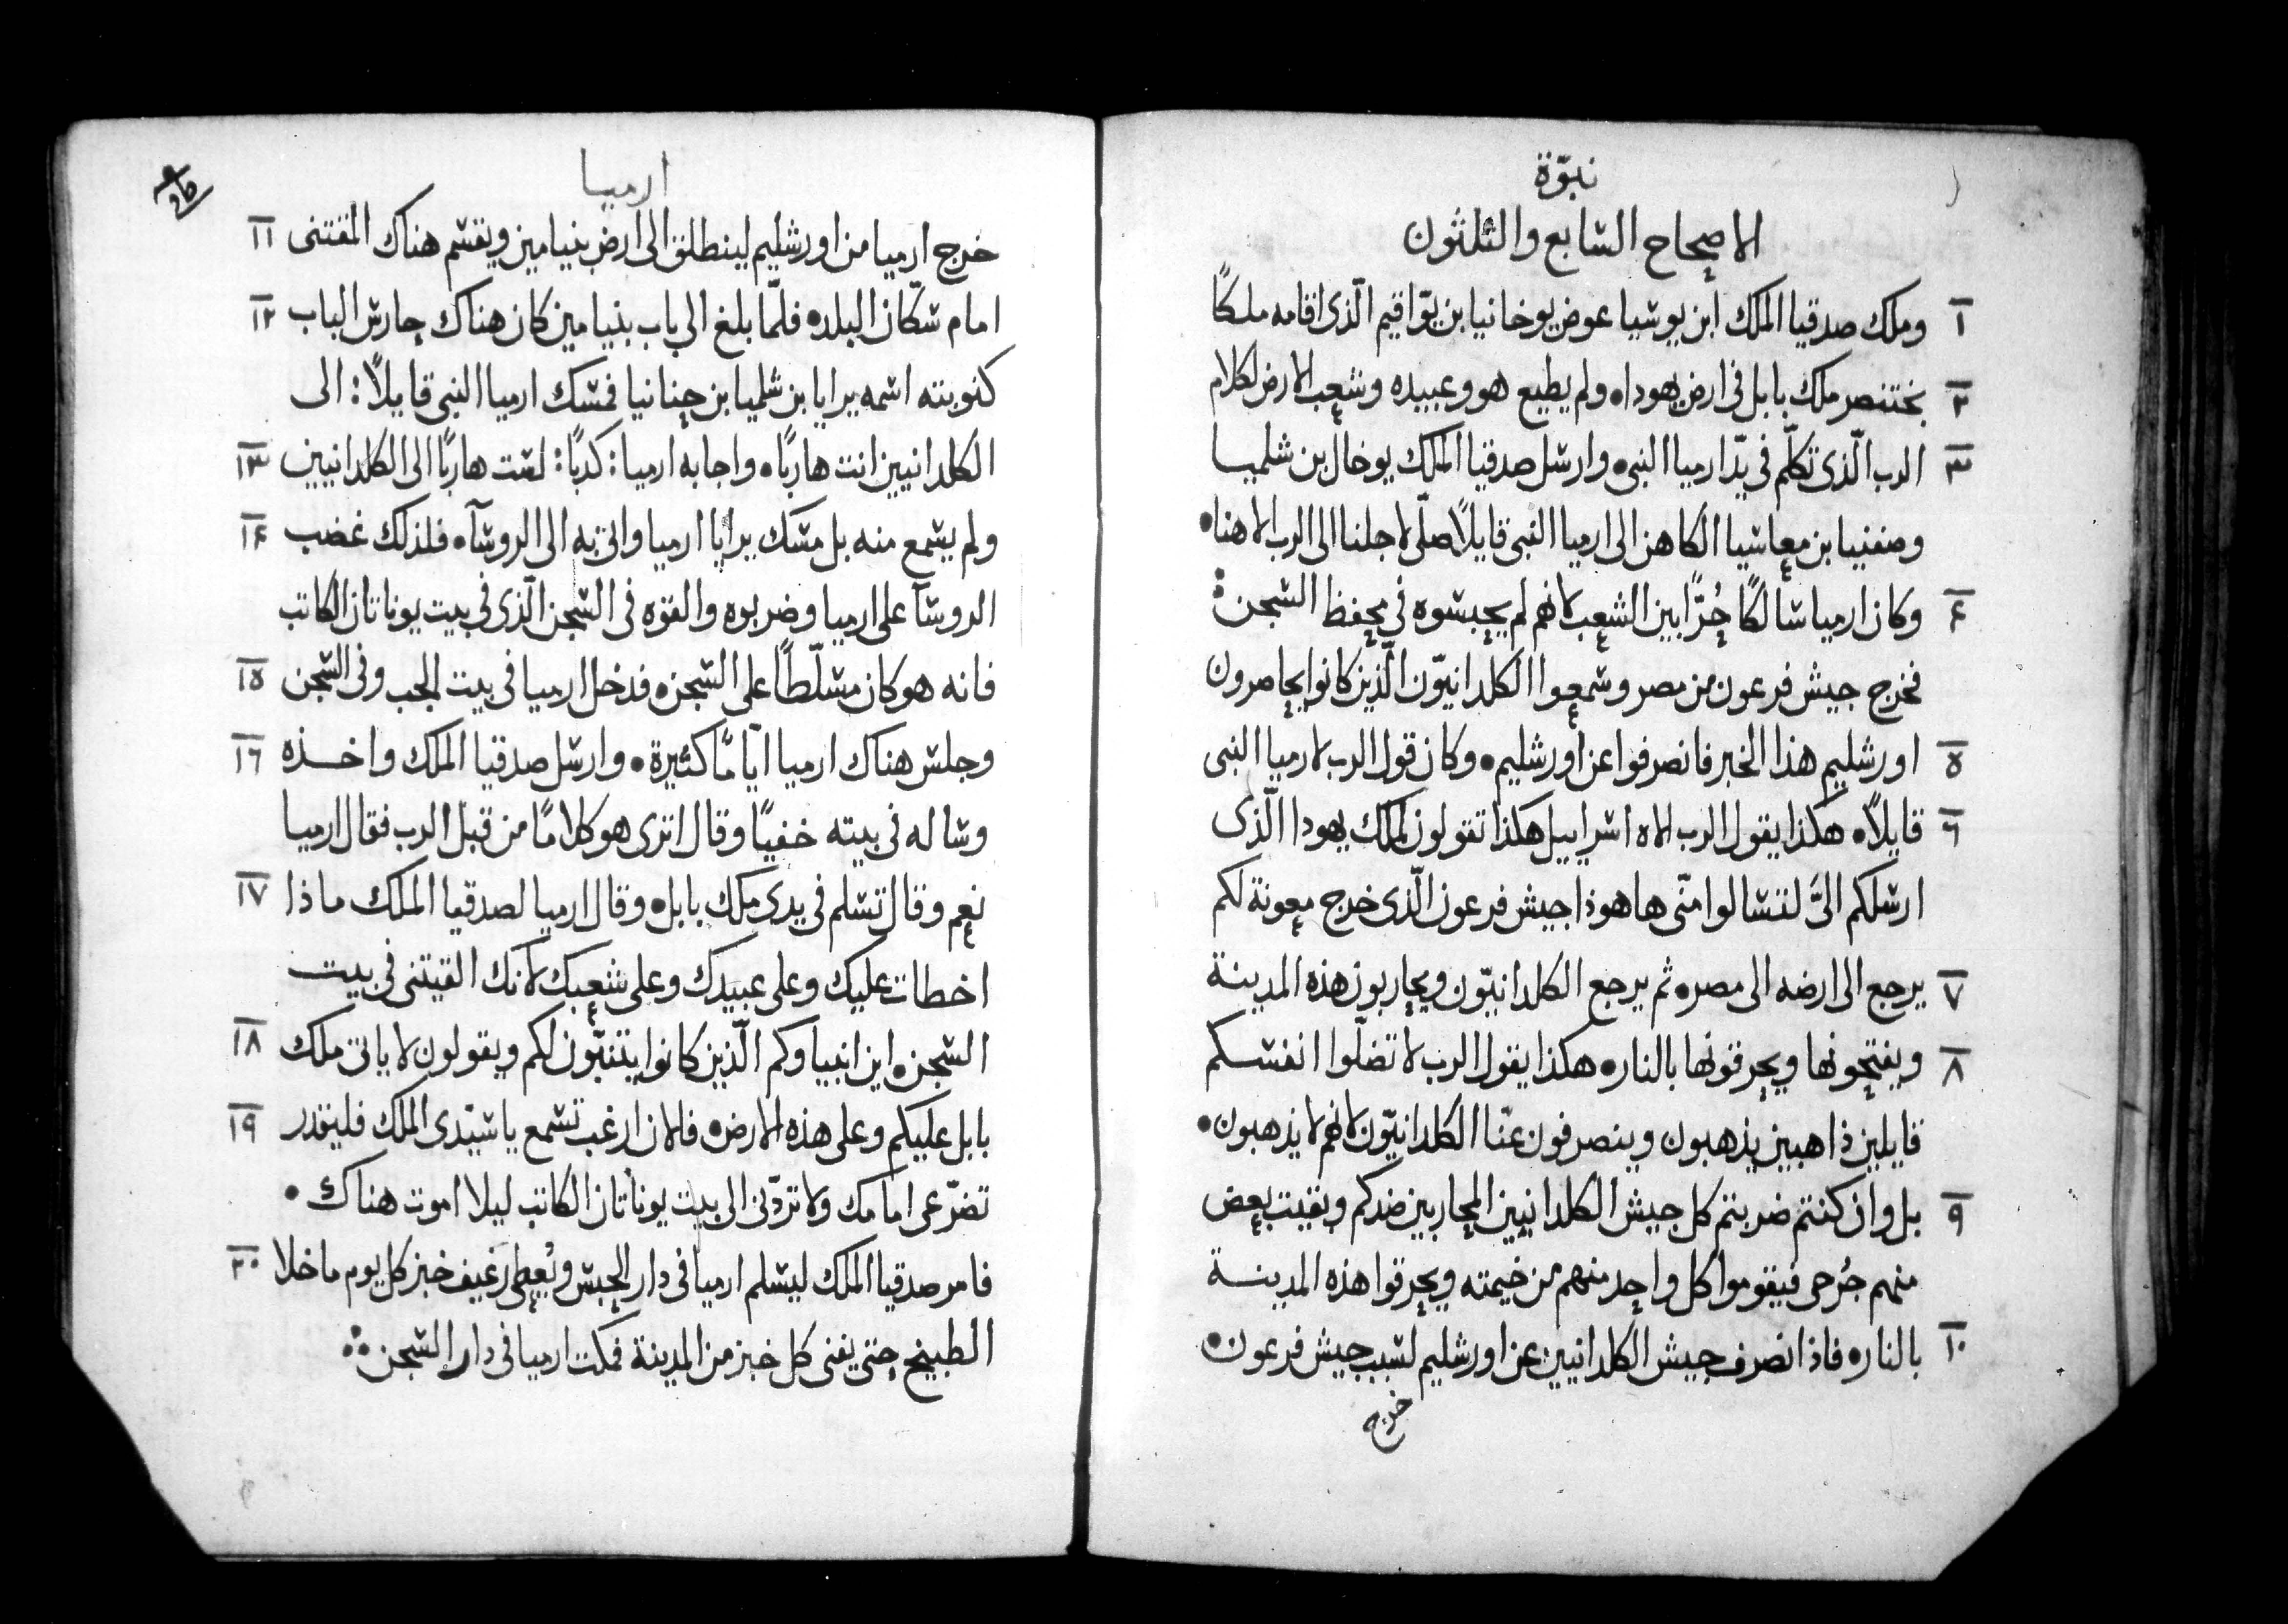 نبوّة
الاصحاح السابع والثلثون
١ وملك صدقيا الملك ابن يوشيا عوض يوخانيا بن يوّاقيم الّذى اقامه ملكًا
٢ بختنصر ملك بابل فى ارض يهودا۰ ولم يطيع هو وعبيده وشعب الارض لكلام
٣ الرب الّذى تكلّم فى يدّ ارميا النبى۰ وارسل صدقيا الملك يوخال بن شلميا
وصفنيا بن معاسيا الكاهن الى ارميا النبى قايلاً صلّى لاجلنا الى الرب الاهنا۰
٤ وكان ارميا سالكًا حُرًّا بين الشعب لانهم لم يحبسوه فى محفظ السجن:
فخرج جيش فرعون من مصر وسمعوا الكلدانيّون الّذين كانوا يحاصرون
٥ اورشليم هذا الخبر فانصرفوا عن اورشليم۰ وكان قول الرب لارميا النبى
٦ قايلاً۰ هكذا يقول الرب الاه اسراييل هكذا تقولون لملك يهودا الّذى
ارسلكم الىَّ لتسالوا منّى ها هوذا جيش فرعون الّذى خرج معونة لكم
٧ يرجع الى ارضه الى مصر۰ ثم يرجع الكلدانيّون ويحاربون هذه المدينة
٨ ويفتحونها ويحرقونها بالنار۰ هكذا يقول الرب لا تضلّوا انفسكم
قايلين ذاهبين يذهبون وينصرفون عنّا الكلدانيّون لانهم لا يذهبون۰
٩ بل وان كنتم ضربتم كل جيش الكلدانيين المحاربين ضدكم وبقيت بعض
منهم جُرحى فيقوموا كل واحد منهم من خيمته ويحرقوا هذه المدينة
١٠ بالنار۰ فاذا انصرف جيش الكلدانيين عن اورشليم لسبب جيش فرعون۰
خرج
ارميا
خرج ارميا من اورشليم لينطلق الى ارض بنيامين ويقسم هناك المقتنى ١١
امام سكّان البلد۰ فلمّا بلغ الى باب بنيامين كان هناك حارس الباب ١٢
كنوبته اسمه يرايا بن شلميا بن حنانيا فمسك ارميا النبى قايلاً: الى
الكلدانيين انت هاربًا۰ واجابه ارميا: كدبًا: لست هاربًا الى الكلدانيين ١٣
ولم يسمع منه بل مسك يرايا ارميا واتى به الى الروسآ۰ فلذلك غضب ١٤
الروسآ على ارميا وضربوه والقوه فى السجن الّذى فى بيت يوناتان الكاتب
فانه هو كان مسلّطًا على السجن۰ فدخل ارميا فى بيت الجب وفى السجن ١٥
وجلس هناك ارميا ايّامًا كثيرة۰ وارسل صدقيا الملك واخذه ١٦
وساله فى بيته خفيًا وقال اترى هو كلامًا من قبل الرب فقال ارميا
نعم وقال تسلم فى يدى ملك بابل۰ وقال ارميا لصدقيا الملك ماذا ١٧
اخطات عليك وعلى عبيدك وعلى شعبك لانك القيتنى فى بيت
السجن۰ اين انبياوكم الّذين كانوا يتنبّون لكم ويقولون لا ياتى ملك ١٨
بابل عليكم وعلى هذه الارض۰ فالان ارغب تسمع يا سيّدى الملك فليقدر ١٩
تضرّعى امامك ولا تردّنى الى بيت يوناتان الكاتب ليلا اموت هناك ۰
فامر صدقيا الملك ليسلم ارميا فى دار الحبس ويُعطى رغيف خبز كل يوم ما خلا ٢٠
الطبيخ حتى يفنى كل خبز من المدينة فمكت ارميا فى دار السجن